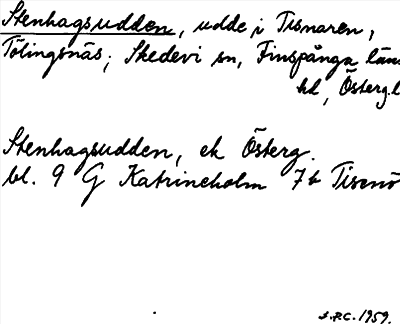 Stenhagsudden, udde i Tisnaren,
Tölingsnäs, Skedevi sn, Finspånga läns
hd, Österg.l
Stenhagsudden, ek Österg.
bl. 9 G Katrineholm 7b Tisenö
S.P.C. 1959.